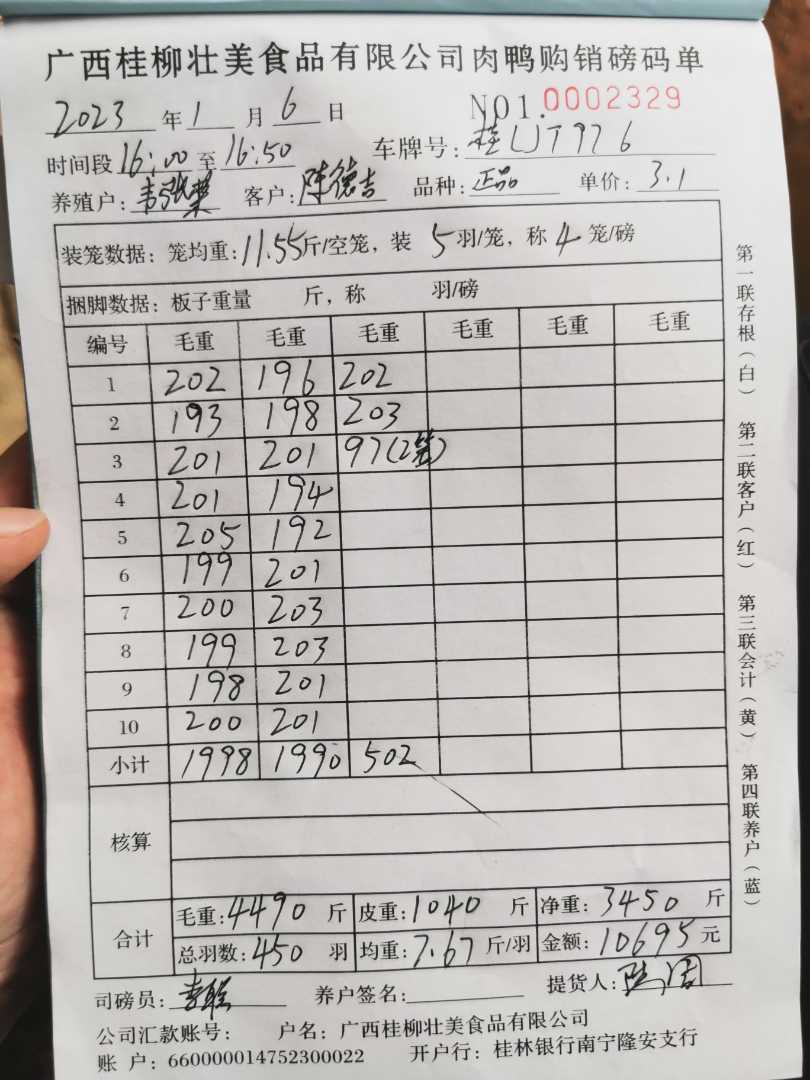 广西桂柳壮美食品有限公司肉鸭购销磅码单
2023 年 1 月 6 日 NO1.0002329
时间段 16:00 至 16:50 车牌号: 桂LJT976
养殖户: 客户: 陈德吉 品种: 正品 单价: 3.1
装笼数据: 笼均重: 11.55 斤/空笼, 装 5 羽/笼, 称 4 笼/磅
捆脚数据: 板子重量 斤, 称 羽/磅
编号 毛重 毛重 毛重 毛重 毛重 毛重
1 202 196 202
2 193 198 203
3 201 201 97(2笼)
4 201 194
5 205 192
6 199 201
7 200 203
8 199 203
9 198 201
10 200 201
小计 1998 1990 502
核算
合计 毛重: 4490 斤 皮重: 1040 斤 净重: 3450 斤
总羽数: 450 羽 均重: 7.67 斤/羽 金额: 10695 元
司磅员: 养户签名: 提货人:
公司汇款账号: 户名: 广西桂柳壮美食品有限公司
账 户: 660000014752300022 开户行: 桂林银行南宁隆安支行
第一联存根(白) 第二联客户(红) 第三联会计(黄) 第四联养户(蓝)